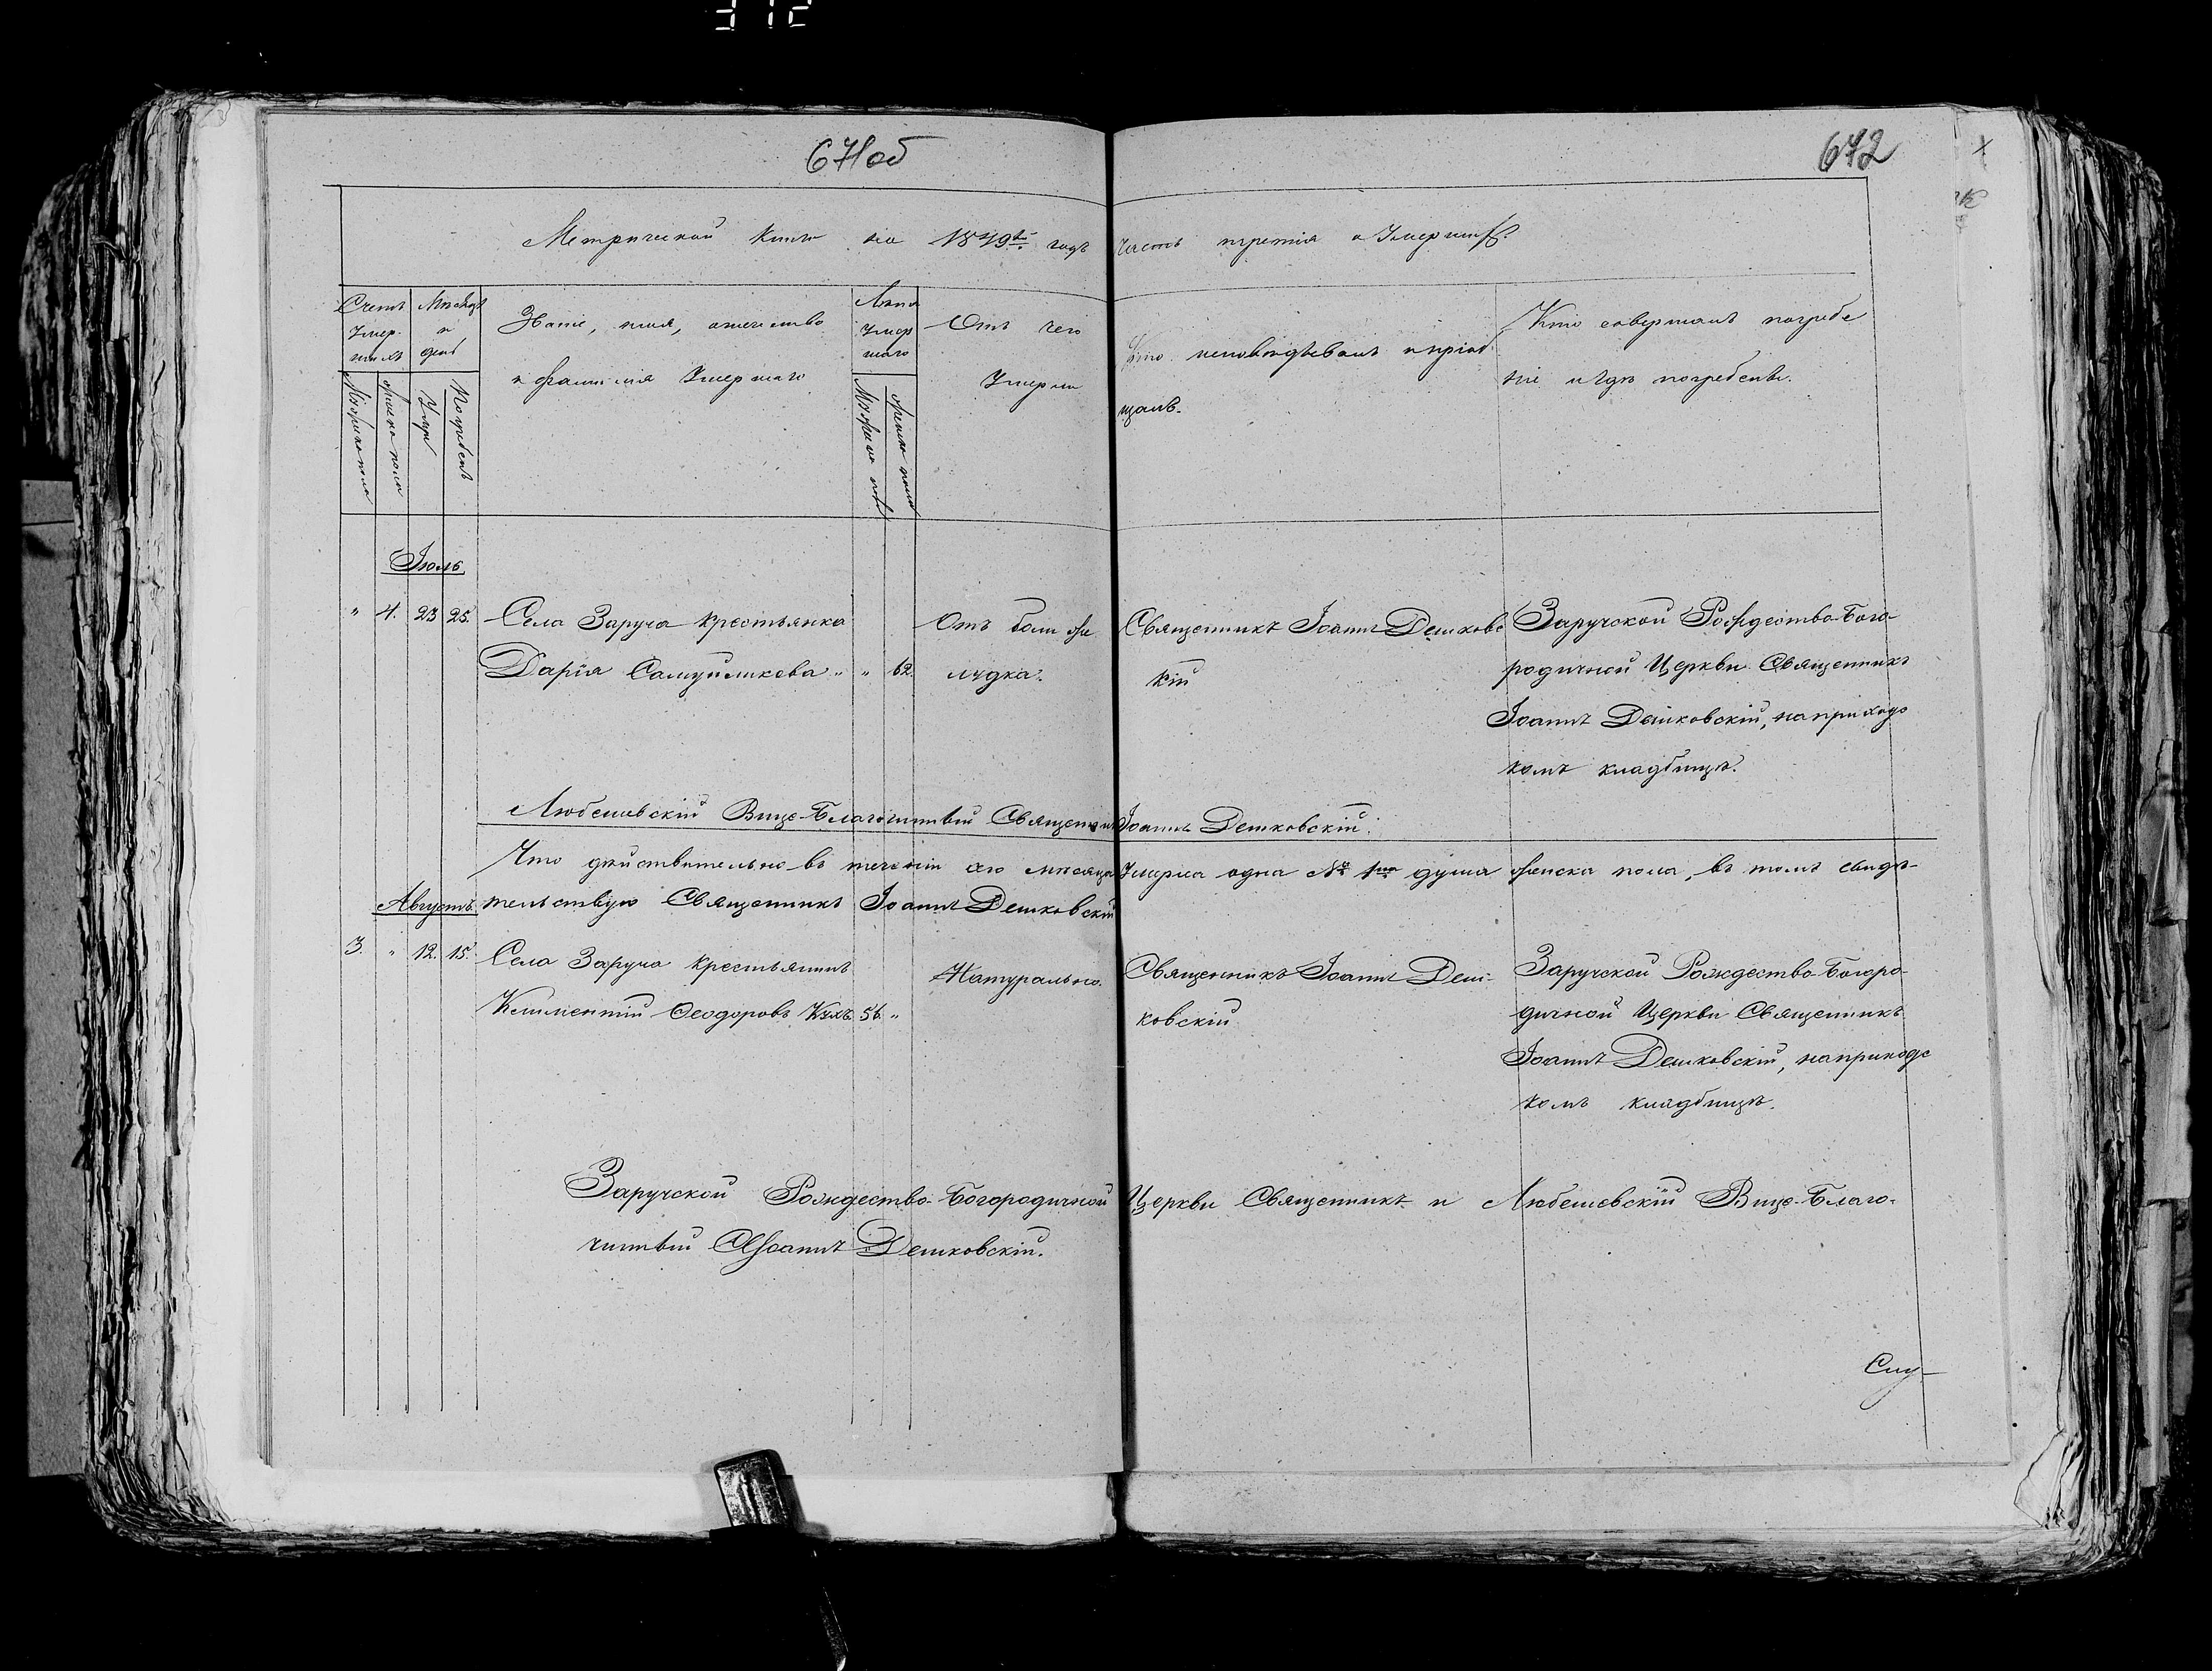 312
671об
672
Метрической книги на 1849й годъ часть третія о Умершихъ.
Счетъ Умершихъ
Мужеска пола
Женска пола
Мѣсяцъ и день
Умер.
Погребенъ
Званіе, имя, отчество
и фамилія Умершаго
Лѣта Умершаго
Мужеска пола
Женска пола
Отъ чего
Умерли
Кто исповѣдывалъ и пріоб
щалъ.
Кто совершалъ погребе
ніе и гдѣ погребены.
Іюль
" 4. 23 25. Села Заруча крестьянка
Дарія Самуйликова " " 62.
Отъ боли же
лудка.
Священникъ Іоаннъ Дешковс
кій
Заручской Рождество-Бого-
родичной Церкви Священникъ
Іоаннъ Дешковскій, на приходс
комъ кладбищѣ.
Любешевскій Вице-Благочинный Священникъ Іоаннъ Дешковскій.
Что дѣйствительно въ теченіи сего мѣсяца Умерла одна № 1на душа женска пола, въ томъ свидѣ-
тельствую Священникъ Іоаннъ Дешковскій
Августъ
3. " 12. 15. Села Заруча крестьянинъ
Климентій Ѳеодоровъ Кухъ. 56. "
Натурально.
Священникъ Іоаннъ Деш-
ковскій
Заручской Рождество-Богоро-
дичной Церкви Священникъ
Іоаннъ Дешковскій, на приходс
комъ кладбищѣ.
Заручской Рождество-Богородичной Церкви Священникъ и Любешевскій Вице-Благо-
чинный Іоаннъ Дешковскій.